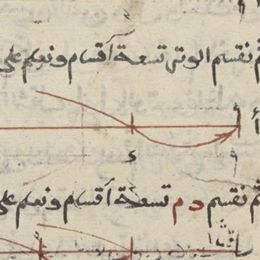 ثم نقسم الوتر تسعة أقسام ونعلم على
أ
ء ٩
ثم نقسم د م تسعة أقسام ونعلم على